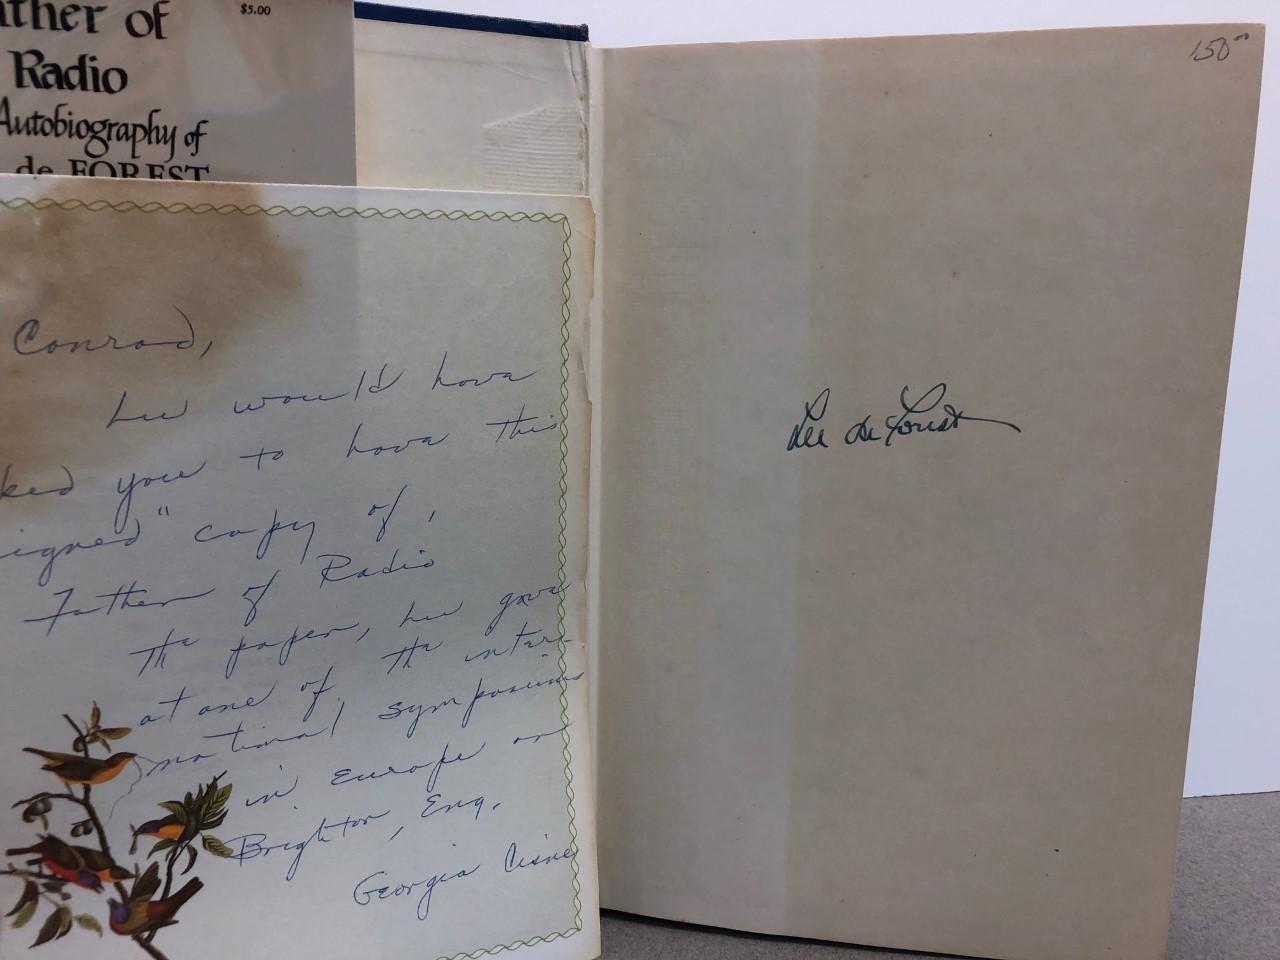 ather of
$5.00
Radio
Autobiography of
de FOREST
150⁰⁰
Conrad,
Lee would have
ked you to have this
igned" copy of,
Father of Radio
The paper, he gave
at one of, the inter-
national symposiums
in Europe or
Brighton, Eng.
Georgia
Lee de Forest